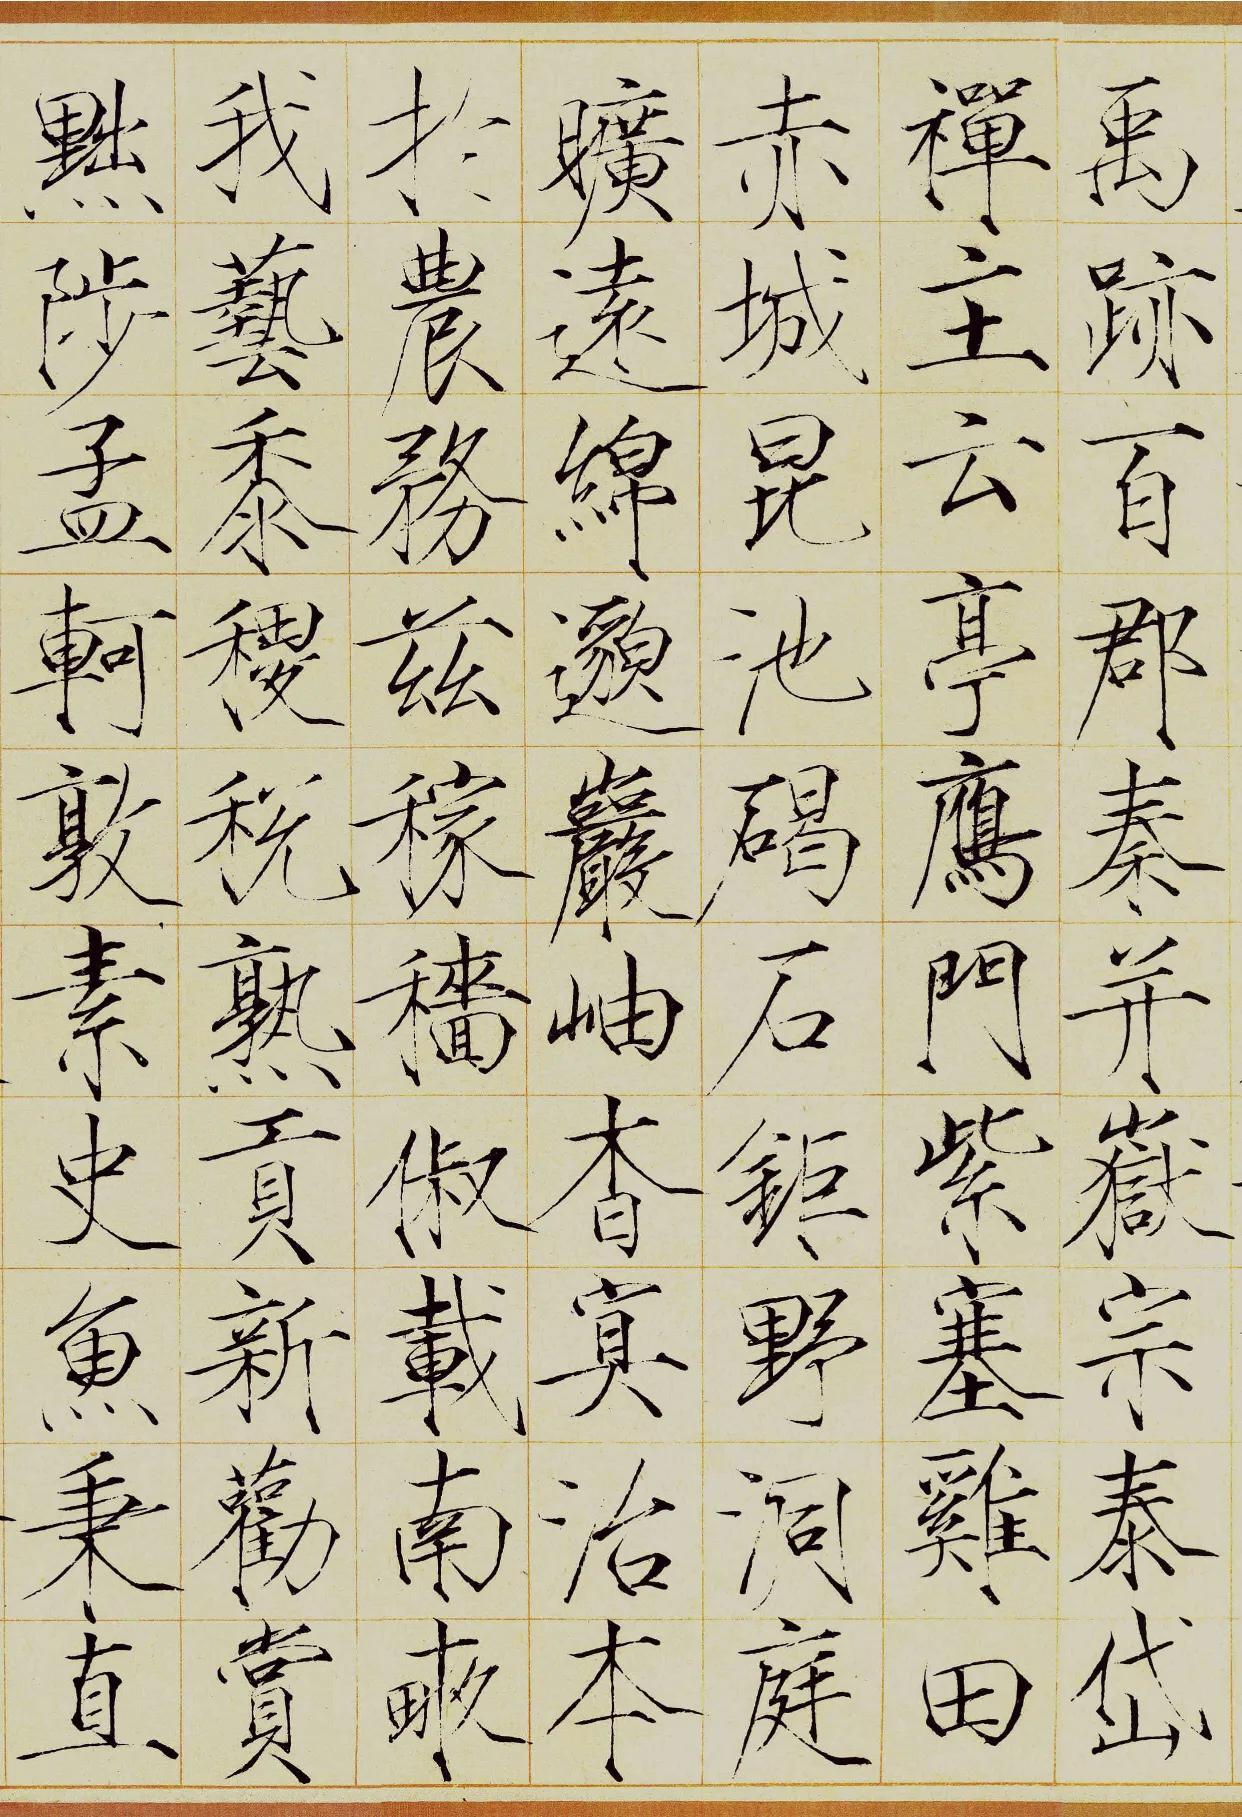 禹跡百郡秦并嶽宗泰岱
禪主云亭鴈門紫塞雞田
赤城昆池碣石鉅野洞庭
曠遠綿邈巖岫杳冥治本
於農務茲稼穡俶載南畝
我藝黍稷稅熟貢新勸賞
黜陟孟軻敦素史魚秉直